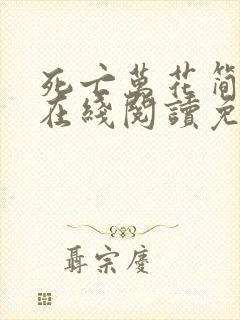 死亡萬花筒
在綫閱讀免
聶宗慶